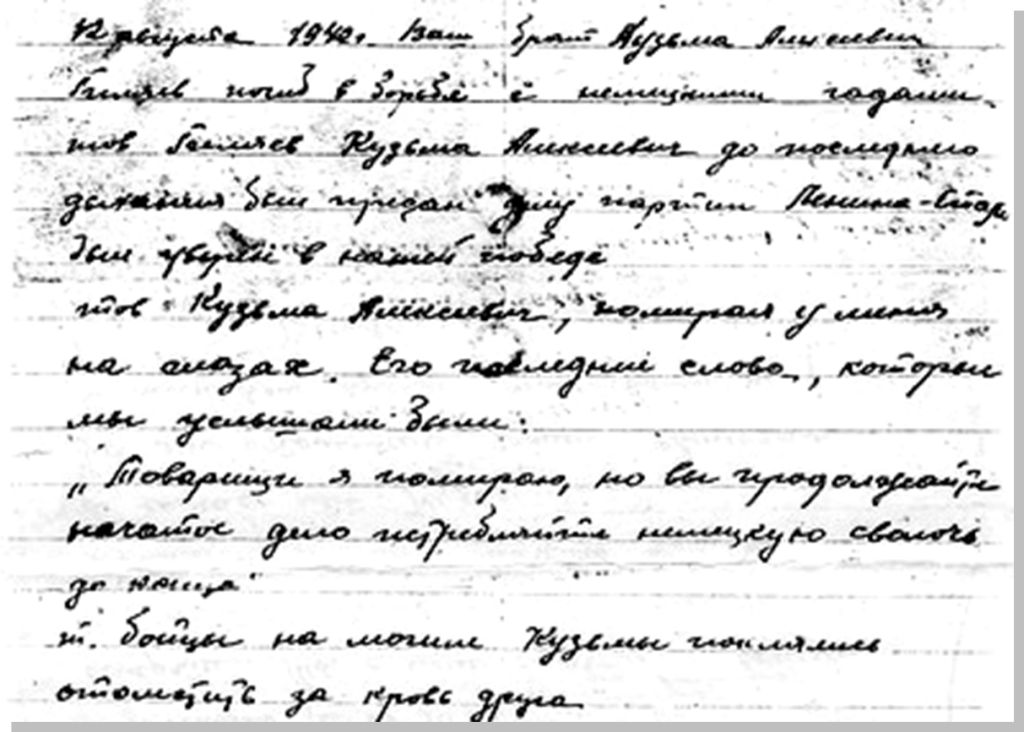 12 августа 1942г. Ваш брат Кузьма Алексеевич
погиб в борьбе с немецкими гадами.
тов Кузьма Алексеевич до последнего
дыхания был предан делу партии Ленина-Стал
был уверен в нашей победе
тов Кузьма Алексеевич, помирал у меня
на глазах. Его последние слова, которые
мы услышали были:
„Товарищи я помираю, но вы продолжайте
начатое дело истребляйте немецкую сволочь
до конца"
т. бойцы на могиле Кузьмы поклялись
отомстить за кровь друга